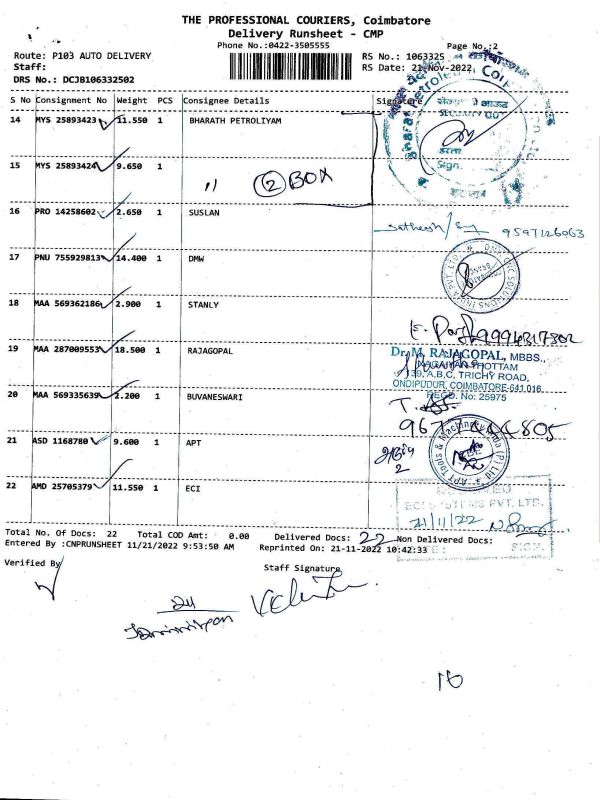 THE PROFESSIONAL COURIERS, Coimbatore
Delivery Runsheet - CMP
Phone No.:0422-3505555
Page No.:2
Route: P103 AUTO DELIVERY
RS No.: 1063325
Staff:
RS Date: 21-Nov-2022
DRS No.: DCJB106332502
S No Consignment No Weight PCS Consignee Details Signature
14 MYS 25893423 11.550 1 BHARATH PETROLIYAM
SECURITY
Sign.
15 MYS 25893424 9.650 1
,, 2 BOX
16 PRO 14258602 2.650 1 SUSLAN
Sathesh 9597126063
17 PNU 755929813 14.400 1 DMW
18 MAA 569362186 2.900 1 STANLY
9994317302
19 MAA 287009553 18.500 1 RAJAGOPAL
Dr. M. RAJAGOPAL, MBBS.,
139, A,B,C, TRICHY ROAD,
ONDIPUDUR, COIMBATORE-641 016.
REGD. No: 25975
20 MAA 569335639 2.200 1 BUVANESWARI
21 ASD 1168780 9.600 1 APT
APT Tools & Machinery India (P) Ltd
2
22 AMD 25705379 11.550 1 ECI
PVT. LTD.
21/11/22
SIGN.
Total No. Of Docs: 22 Total COD Amt: 0.00 Delivered Docs: 22 Non Delivered Docs:
Entered By :CNPRUNSHEET 11/21/2022 9:53:50 AM Reprinted On: 21-11-2022 10:42:33
Verified By
Staff Signature
16